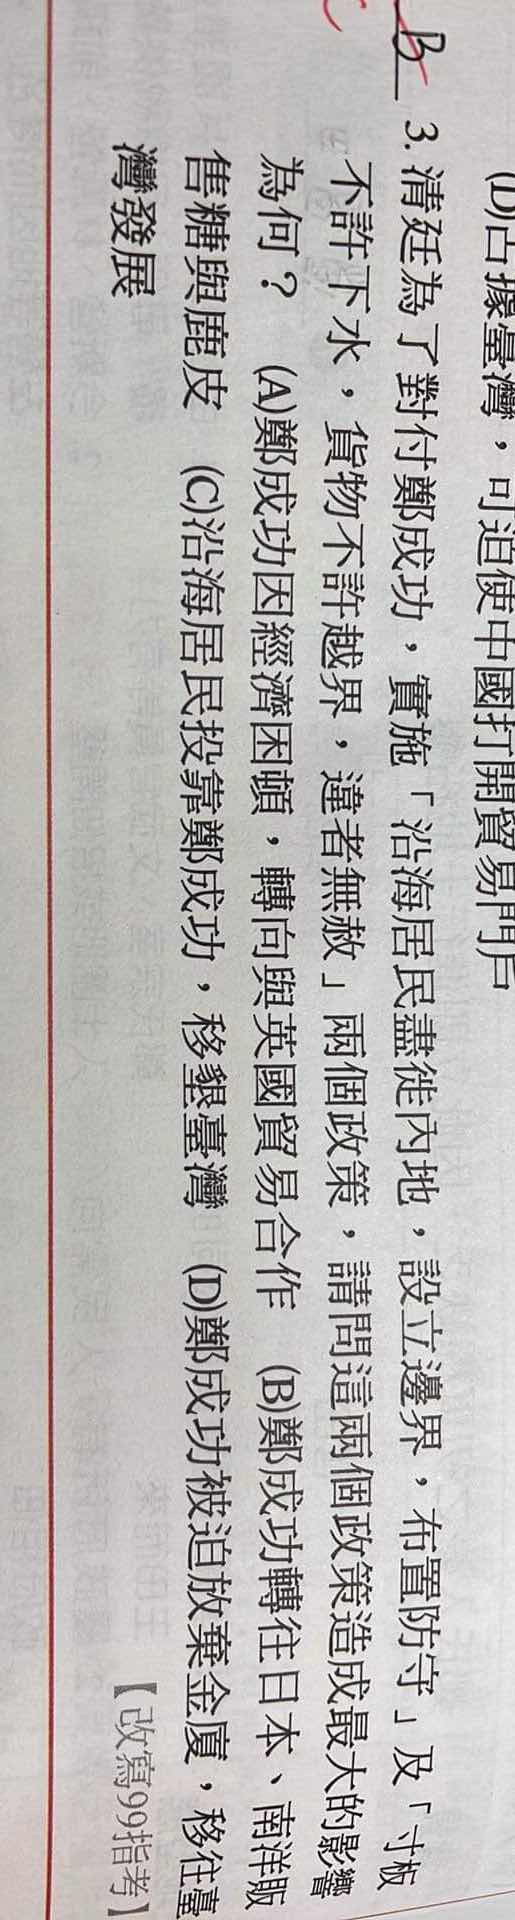 (D)占據臺灣，可迫使中國打開貿易門戶
B 3. 清廷為了對付鄭成功，實施「沿海居民盡徙內地，設立邊界，布置防守」及「寸板
不許下水，貨物不許越界，違者無赦」兩個政策，請問這兩個政策造成最大的影響
為何？ (A)鄭成功因經濟困頓，轉向與英國貿易合作 (B)鄭成功轉往日本、南洋販
售糖與鹿皮 (C)沿海居民投靠鄭成功，移墾臺灣 (D)鄭成功被迫放棄金廈，移往臺
灣發展
【改寫99指考】
C